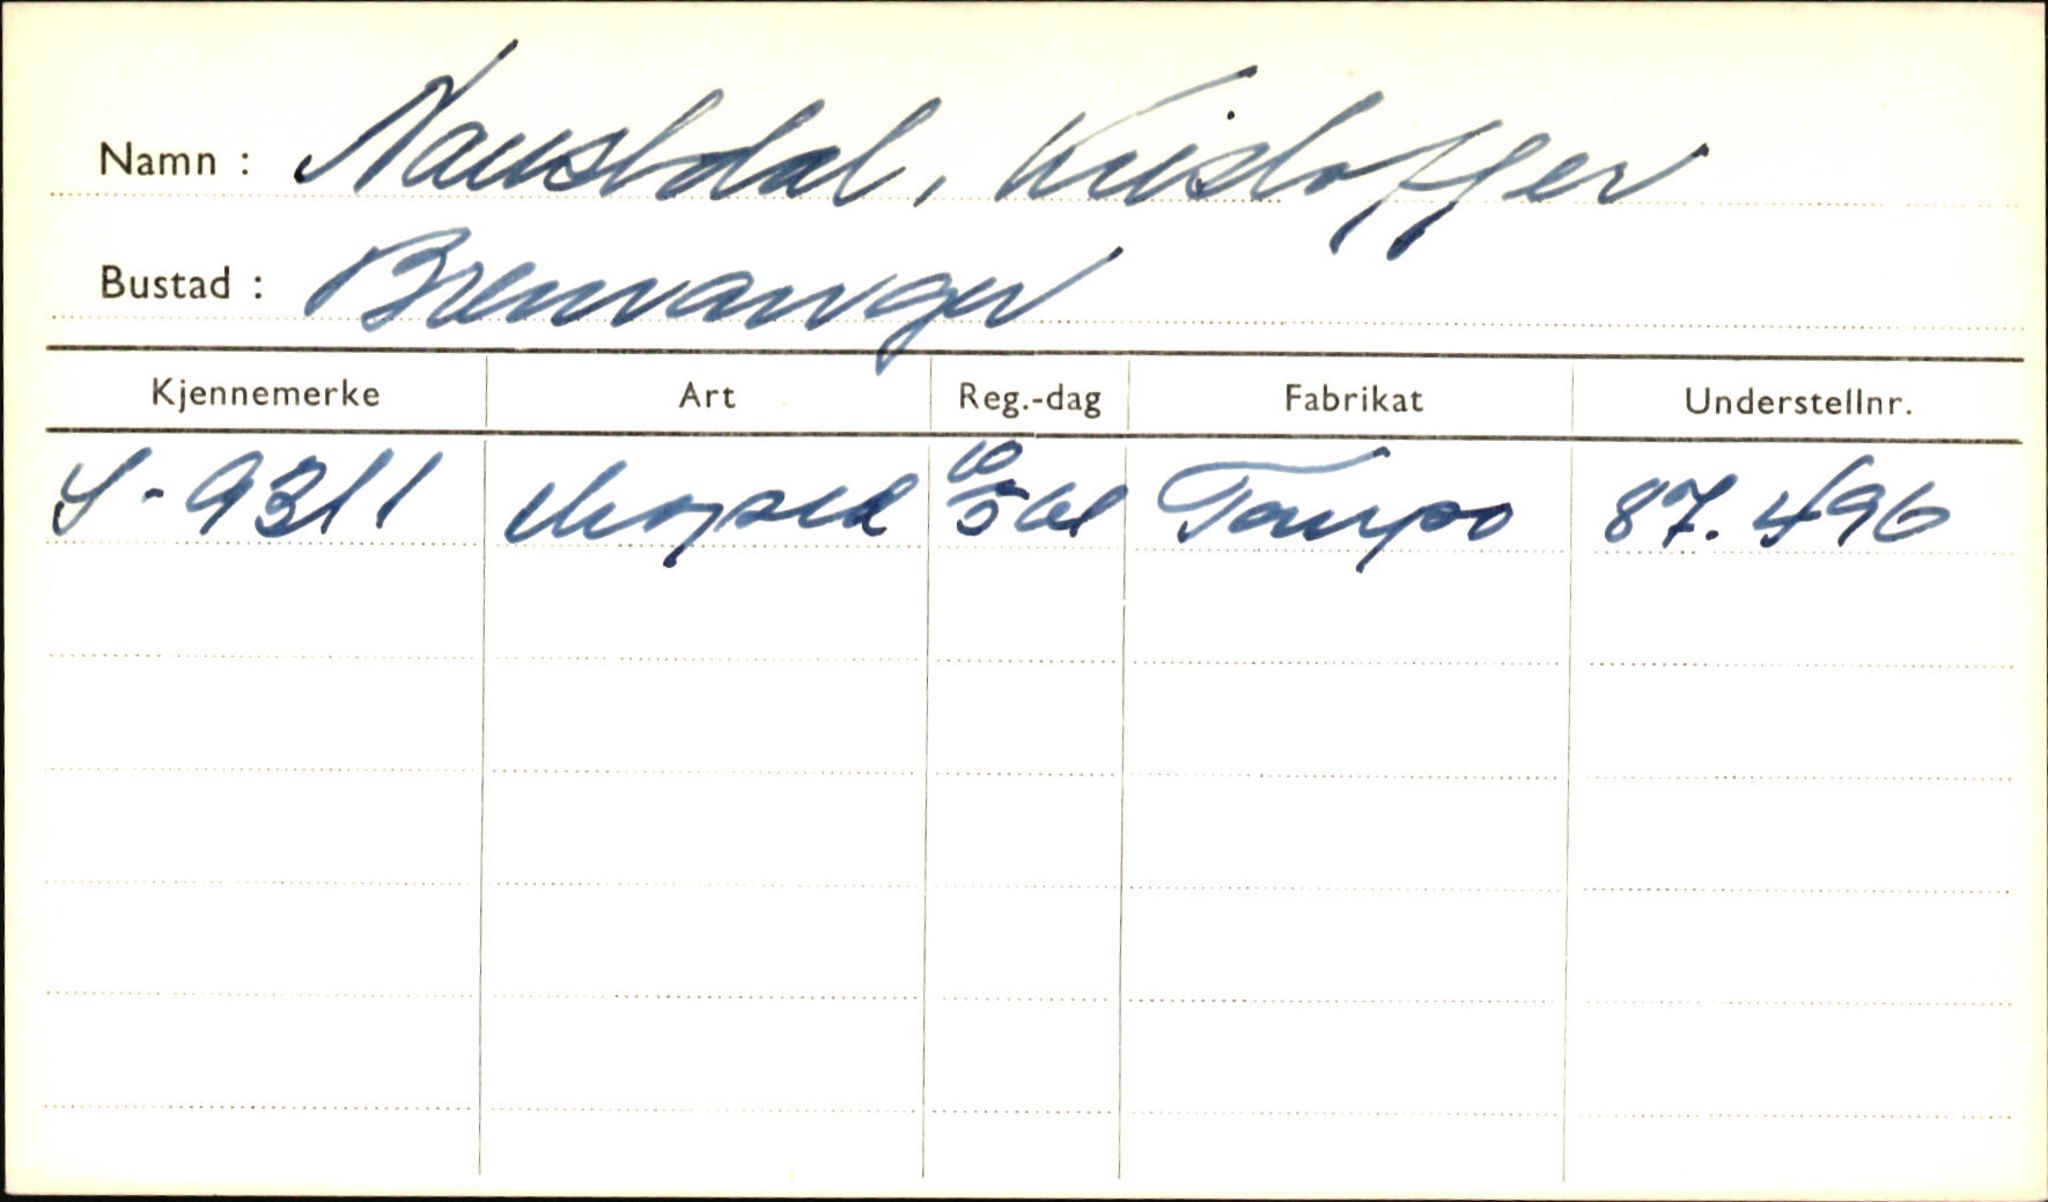 Namn : Naustdal, Kristoffer
Bustad : Bremanger
Kjennemerke Art Reg.-dag Fabrikat Understellnr.
S-9311 Moped 10/5 61 Tempo 87.496